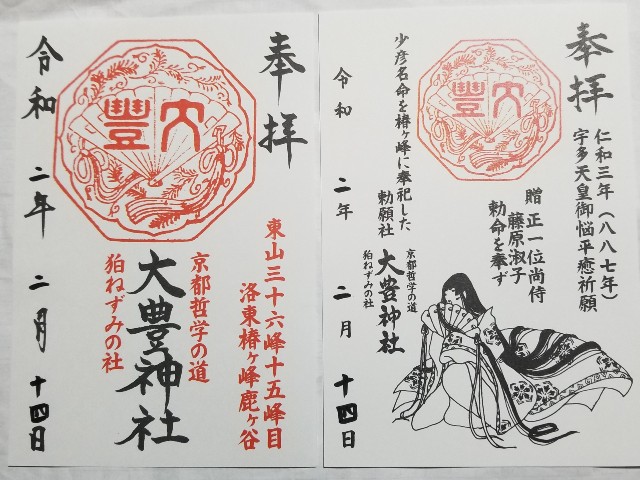 奉拝
仁和三年(八八七年)
宇多天皇御悩平癒祈願
贈 正一位尚侍
藤原淑子
勅命を奉ず
大豐
少彦名命を椿ヶ峰に奉祀した
勅願社
京都哲学の道
大豊神社
狛ねずみの社
令和 二年 二月 十四日
奉拝
東山三十六峰十五峰目
洛東椿ヶ峰鹿ヶ谷
大豐
京都哲学の道
大豊神社
狛ねずみの社
令和 二年 二月 十四日